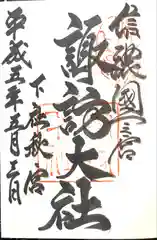 信濃國一宮
諏訪大社
下社秋宮
平成五年五月二日